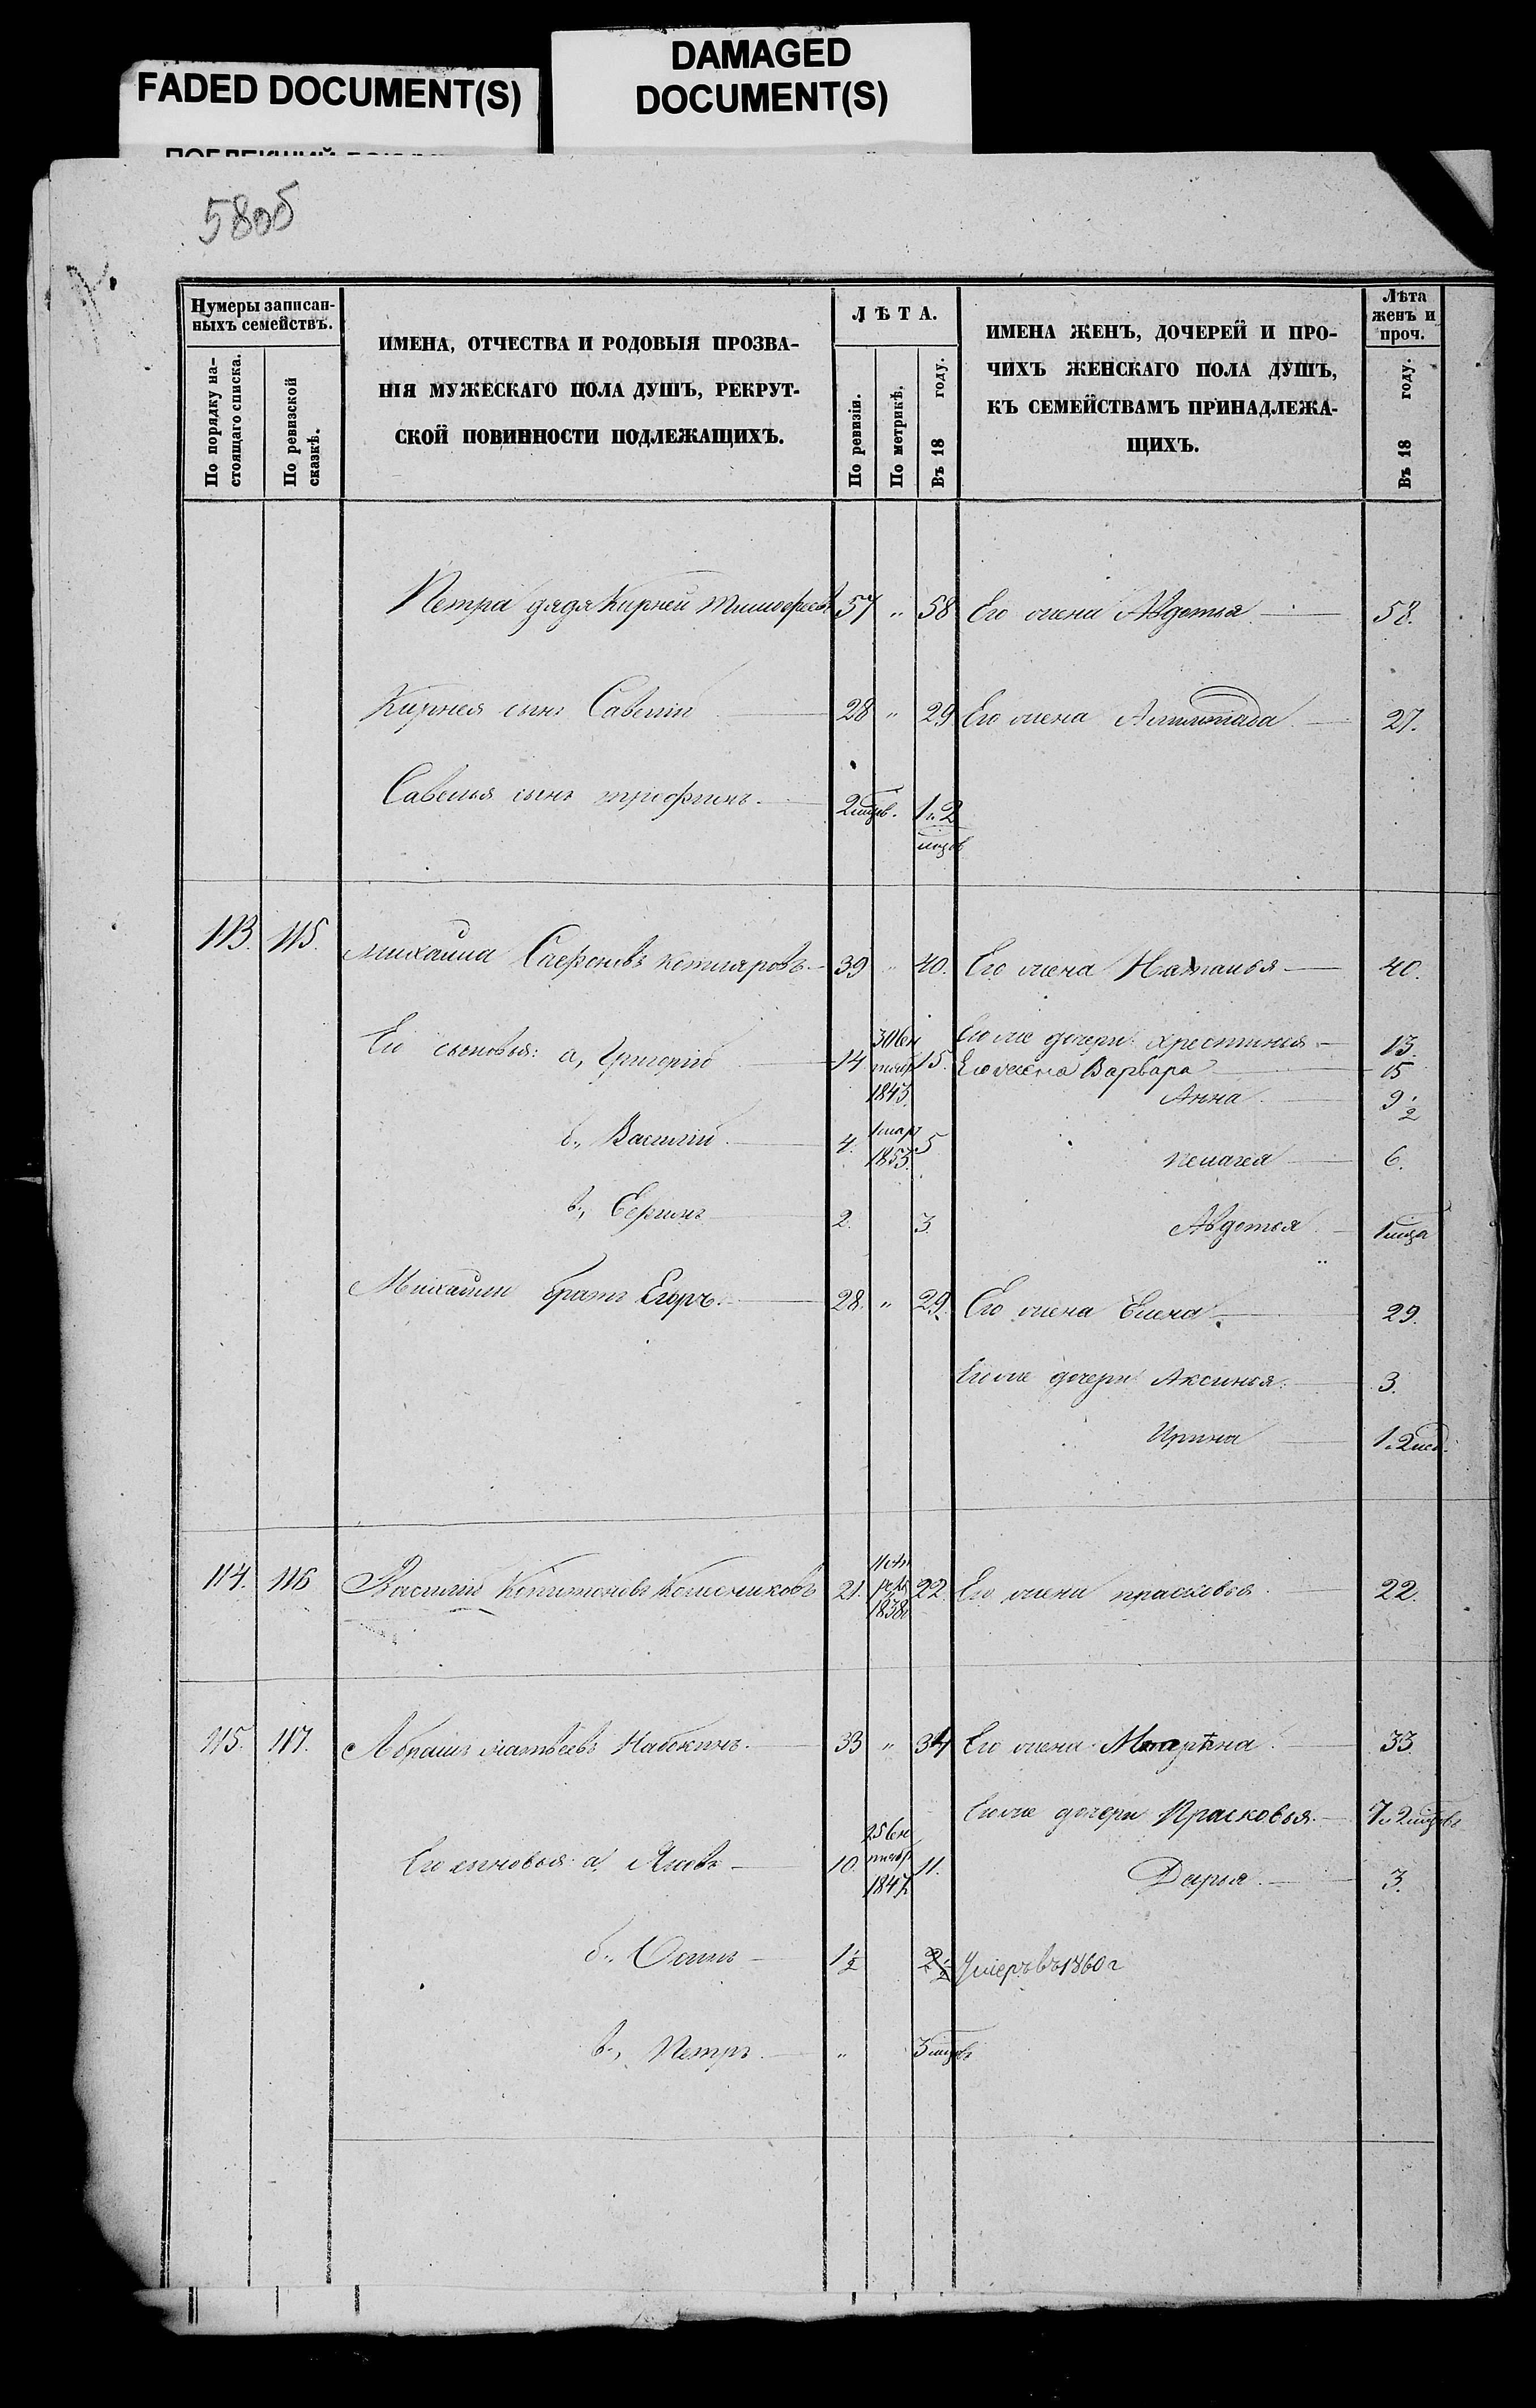 FADED DOCUMENT(S)
DAMAGED
DOCUMENT(S)
58об
Нумеры записан-
ныхъ семействъ.
По порядку на-
стоящаго списка.
По ревизской
сказкѣ.
ИМЕНА, ОТЧЕСТВА И РОДОВЫЯ ПРОЗВА-
НІЯ МУЖЕСКАГО ПОЛА ДУШЪ, РЕКРУТ-
СКОЙ ПОВИННОСТИ ПОДЛЕЖАЩИХЪ.
ЛѢТА.
По ревизіи.
По метрикѣ.
Въ 18 году.
ИМЕНА ЖЕНЪ, ДОЧЕРЕЙ И ПРО-
ЧИХЪ ЖЕНСКАГО ПОЛА ДУШЪ,
КЪ СЕМЕЙСТВАМЪ ПРИНАДЛЕЖА-
ЩИХЪ.
Лѣта
женъ и
проч.
Въ 18 году.
Петра дядя Кирней Тимофеевъ 57 " 58 Его жена Авдотья 58.
Кирнея сынъ Савелий 28 " 29 Его жена 27.
Савелья сынъ трофимъ. 2 мцов. 1 и 2
мцов
113. 115. Михаила Сафоновъ 39 " 40. Его жена Наталья 40.
Его сыновья: а, Григорий 14 30 Сен
тябр
1843. 15. Его же дочери Христинья 13.
Его жена Варвара 15
Анна 9 1/2
б., Василий 4. 1 мар
1853. 5 пелагея 6.
в., Ефимъ 2. 3. Авдотья 1 мца
Михаилы братъ Егоръ. 28. " 29. Его жена Елена 29.
Его же дочери Аксинья. 3.
Ирина 1. 2 нед.
114. 116 Василий 21. 1838 22. Его жена прасковья 22.
115. 117. Абрамъ Матвеевъ Набокинъ. 33 " 34 Его жена 33.
Его же дочери Прасковья. 7 и 2 мцовъ
Его сыновья а. Яковъ 10. 25 Сен
тябр
1847. 11. Дарья 3.
б., Осипъ 1 1/2 2 1/2 Умеръ въ 1860 г
в., Петръ. " 3 мцовъ